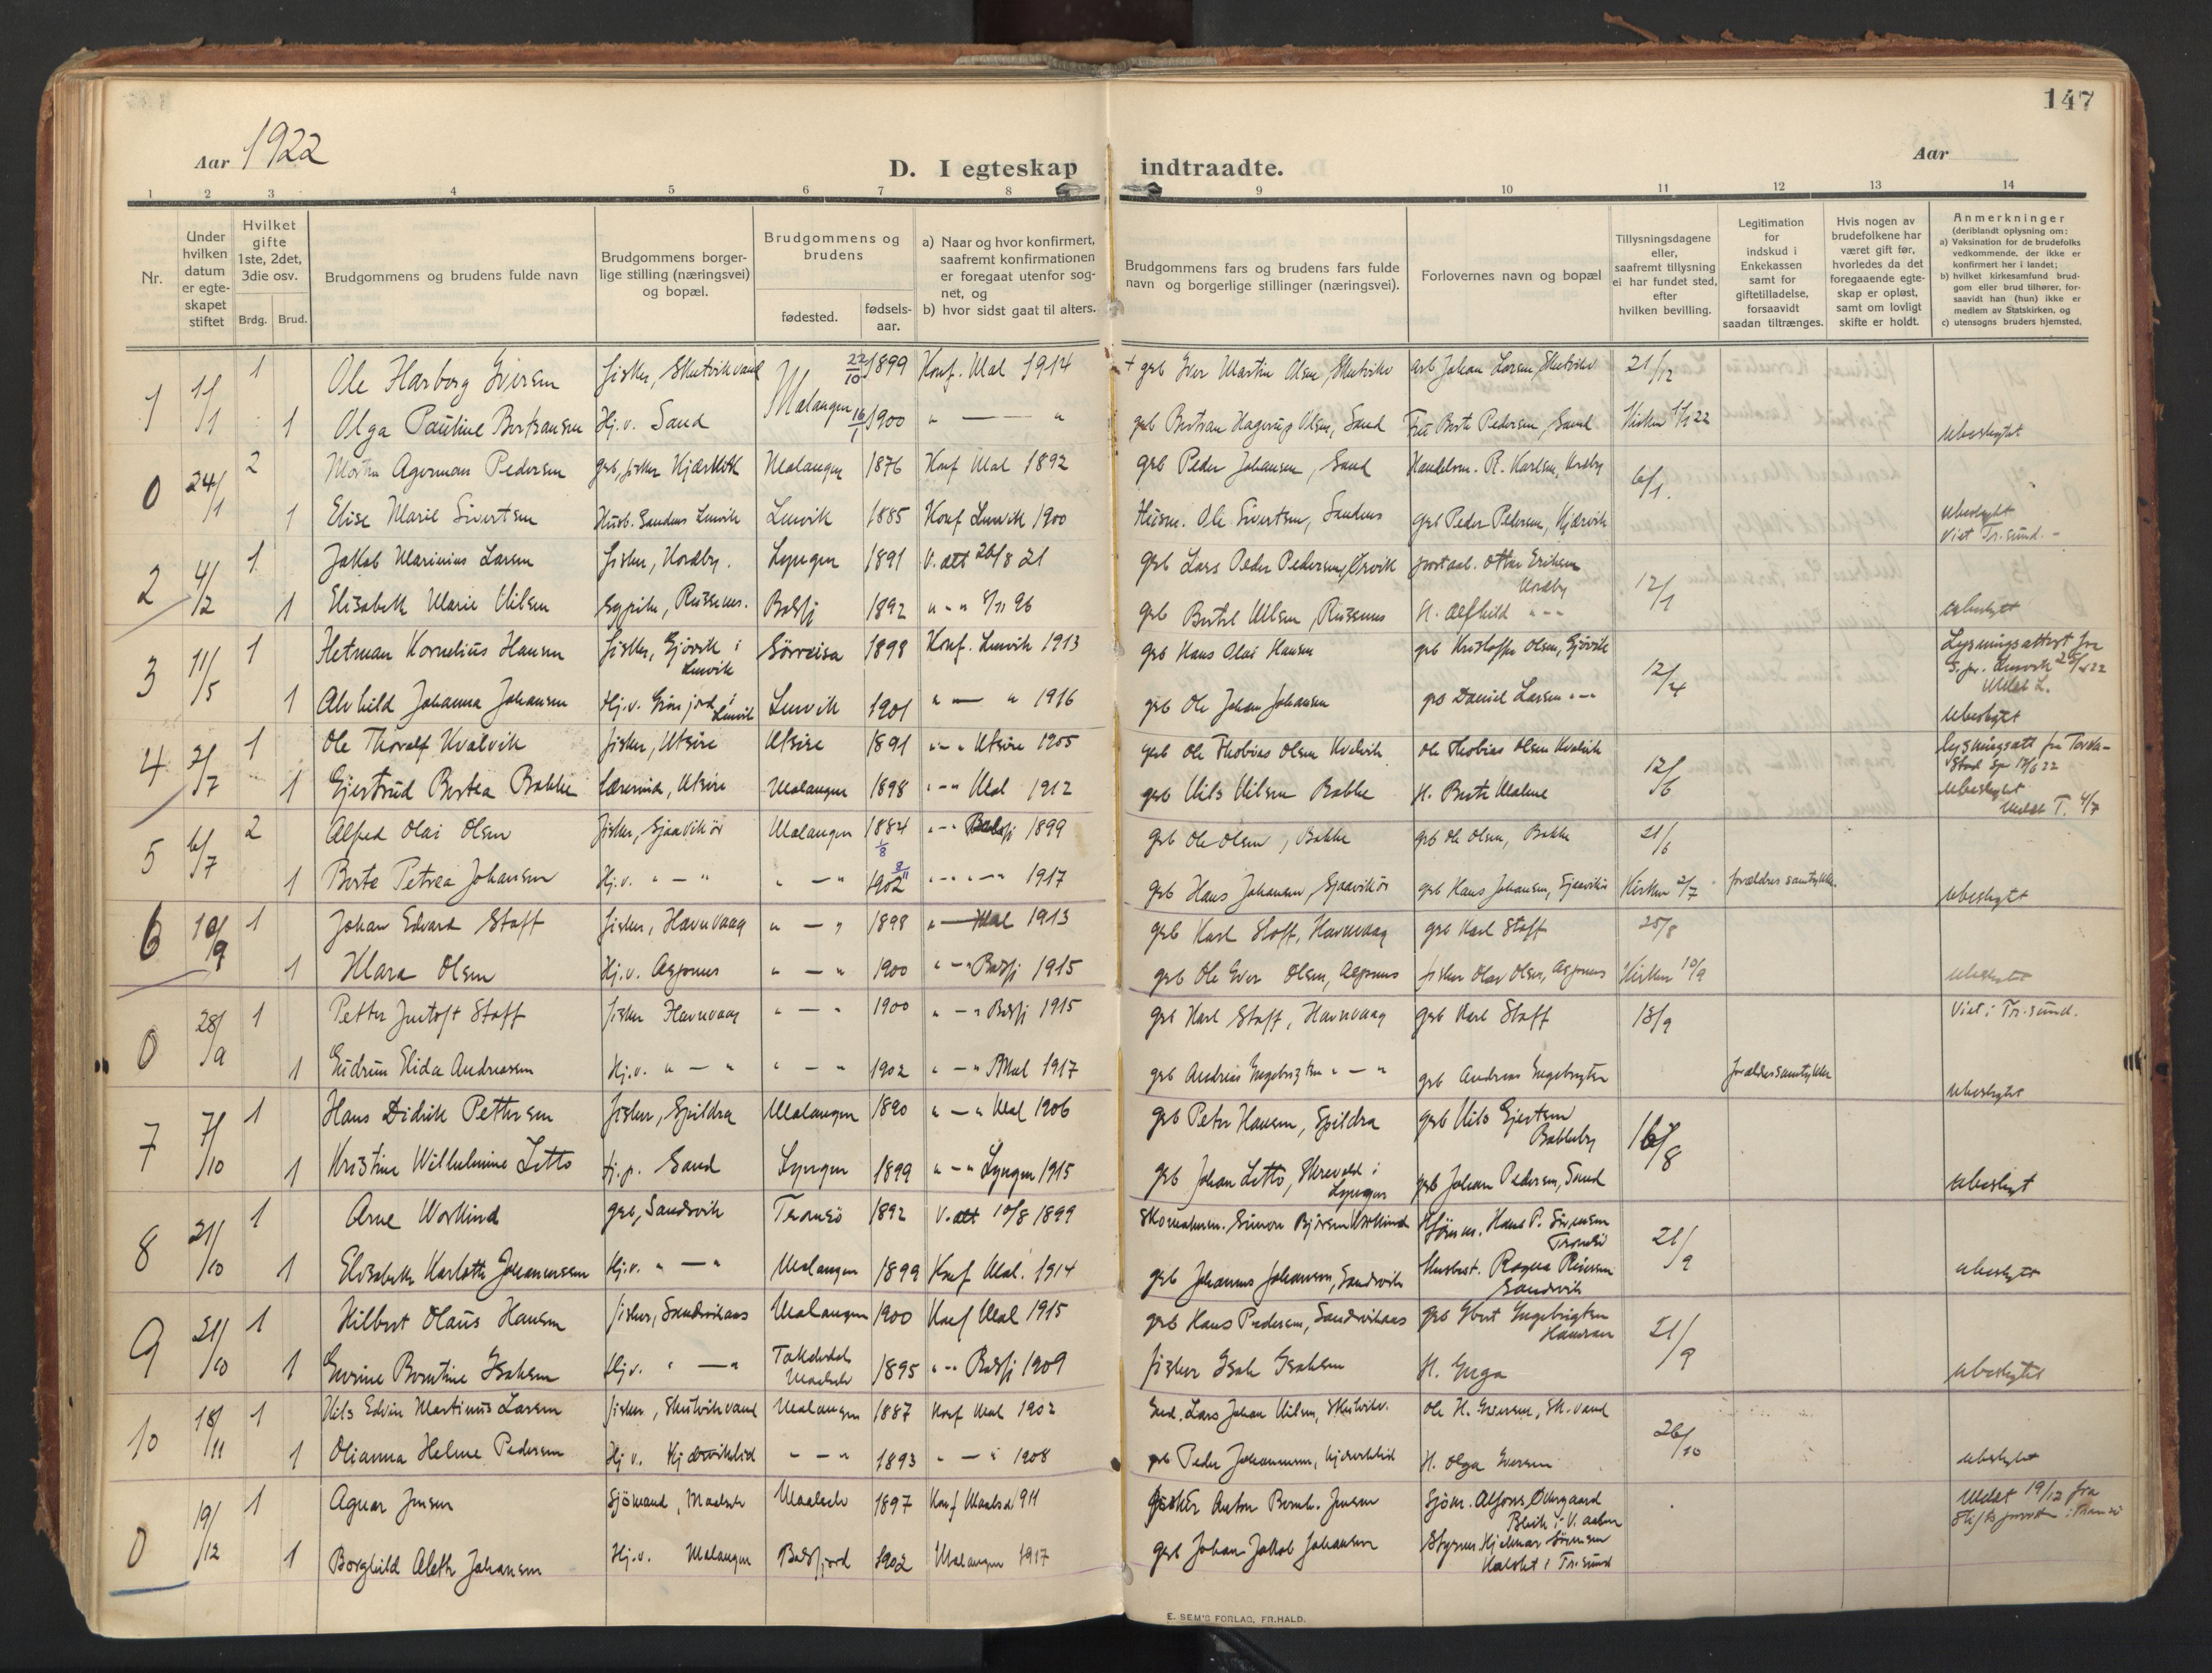 147
Aar 1922
D. I egteskap indtraadte.
Aar
1 2 3 4 5 6 7 8 9 10 11 12 13 14
Nr.
Under hvilken datum er egte-skapet stiftet
Hvilket gifte 1ste, 2det, 3die osv.
Brdg. Brud.
Brudgommens og brudens fulde navn
Brudgommens borger-lige stilling (næringsvei) og bopæl.
Brudgommens og brudens
fødested.
fødsels-aar.
a) Naar og hvor konfirmert, saafremt konfirmationen er foregaat utenfor sog-net, og
b) hvor sidst gaat til alters.
Brudgommens fars og brudens fars fulde navn og borgerlige stillinger (næringsvei).
Forlovernes navn og bopæl
Tillysningsdagene eller, saafremt tillysning ei har fundet sted, efter hvilken bevilling.
Legitimation for indskud i Enkekassen samt for giftetilladelse, forsaavidt saadan tiltrænges.
Hvis nogen av brudefolkene har været gift før, hvorledes da det foregaaende egte-skap er opløst, samt om lovligt skifte er holdt.
Anmerkninger
(deriblandt oplysning om:
a) Vaksination for de brudefolks vedkommende, der ikke er konfirmert her i landet;
b) hvilket kirkesamfund brud-gom eller brud tilhører, for-saavidt han (hun) ikke er medlem av Statskirken, og
c) utensogns bruders hjemsted.
1 1/1 1 Ole Harborg Iversen fisker, Skutvikvand Malangen 22/10 1899 Konf. Mal 1914 + grb Iver Martin Olsen, Skutvikv grb Johan Larsen, Skutvikv 21/12
1 Olga Pauline Bertsansen Hj.v. Sand 16/1 1900 " — " grb Bertsan Hagerup Olsen, Sand Berte Pedersen, Sand Kirken 1/1 22 ubeslegtet
0 24/1 2 Morten Agerman Pedersen grb, fisker Kjærvik Malangen 1876 Konf Mal 1892 grb Peder Johansen, Sand Handelsm. R. Karlsen, Nordby 6/1.
1 Elise Marie Sivertsen Husb. Sandnes Lenvik Lenvik 1885 Konf Lenvik 1900 Husm. Ole Sivertsen, Sandnes grb Peder Pedersen, Kjærvik ubeslegt
Viet Tr.sund. -
2 4/2 1 Jakob Marinius Larsen fisker, Nordby. Lyngen 1891 V. att 20/8 21 grb Lars Peder Pedersen, Ørvik postaab. Ottar Eriksen Nordby 12/1
1 Elisabeth Marie Nilsen Sypike, Russenes. Balsfj 1892 " - " 8/11 96 grb Bertel Nilsen, Russenes H. Alfhild " - " ubeslegtt
3 11/5 1 Hetman Kornelius Hansen fisker, Gjövik i Lenvik Sörreisa 1898 Konf. Lenvik 1913 grb Hans Olai Hansen grb Kristoffer Olsen, Gjövik 12/4 Lysningsattest fra S.pr. Lenvik 25/4 22
Meldt L.
1 Alvhild Johanna Johansen Hj.v. Grönjord i Lenvik Lenvik 1901 " — " 1916 grb Ole Johan Johansen grb Daniel Larsen " - " ubeslegtet
4 2/7 1 Ole Thoralf Kvalvik fisker, Utsire Utsire 1891 " - " Utsire 1905 grb Ole Thobias Olsen Kvalvik Ole Thobias Olsen Kvalvik 12/6 Lysningsatt fra Torvastad Spr 17/6 22
1 Gjertrud Bertea Bakke Lærerinde, Utsire Malangen 1898 " - " Mal 1912 grb Nils Nilsen Bakke H. Berte Malene ubeslegtet
Meldt T. 4/7
5 6/7 2 Alfred Olai Olsen fisker, Sjaavikör Malangen 1884 1/8 " - " Balsfj 1899 grb Ole Olsen, Bakke grb Ole Olsen, Bakke 21/6
1 Berte Petrea Johansen Hj.v. " — " " — " 8/11 1902 " - " - " 1917 grb Hans Johansen, Sjaavikör grb Hans Johansen, Sjaavikör Kirken 2/7 forældres samtykke. ubeslegtet
6 10/9 1 Johan Edvard Stoff fisker, Havnvaag " — " 1898 " — Mal 1913 grb Karl Stoff, Havnvaag grb Karl Stoff 25/8
1 Klara Olsen Hj.v. Aspenes " — " 1900 " - " Balsfj 1915 grb Ole Iver Olsen, Aspenes fisker Olav Olsen, Aspenes Kirken 10/9 ubeslegtet
0 28/9 1 Petter Justoft Stoff fisker Havnvaag " — " 1900 " — " Balsfj 1915 grb Karl Stoff, Havnvaag grb Karl Stoff 13/9 Viet i Tr.sund.
1 Gudrun Elida Andreassen Hj.v. " — " " — " 1902 " — " Mal 1917 grb Andreas Engebrigtsen " — " grb Andreas Engebrigtsen forældres samtykke ubeslegtet
7 7/10 1 Hans Didrik Pettersen fisker, Spildra Malangen 1890 " — " Mal 1906 grb Peter Hansen, Spildra grb Nils Gjertsen Bakkeby 16/8
1 Kristine Wilhelmine Litto tj.p. Sand Lyngen 1899 " — " Lyngen 1915 grb Johan Litto, i Lyngen grb Johan Pedersen, Sand ubeslegt
8 21/10 1 Arne Workind grb, Sandsvik Tromsö 1892 V. att 10/8 1899 Skomakerm. Simon Björsen Workind Hans P. Sörensen Tromsö 21/9
1 Elisabeth Karlotte Johannessen Hj.v. " — " Malangen 1899 Konf Mal. 1914 grb Johannes Johansen, Sandsvik Husbest. Ragna Sandsvik ubeslegtet
9 21/10 1 Hilbert Olaus Hansen fisker, Sandvikaas Malangen 1900 Konf Mal 1915 grb Hans Pedersen, Sandvikaas grb Engebrigtsen 21/9
1 Berntine Isaksen Hj.v. " — " Takelvdal Maalselv 1895 " - " Balsfj 1909 fisker Isak Isaksen H. Inga ubeslegtet
10 18/11 1 Nils Edvin Martinus Larsen fisker, Skutvikvand Malangen 1887 Konf Mal 1902 Lars Johan Nilsen, Skutvikv. Ole H. Iversen, Sk.vand 26/10
1 Olianna Helene Pedersen Hj v. Kjærvikklid " - " 1893 " — " 1908 grb Peder Johannesen, Kjærvikklid H. Olga Iversen ubeslegtet
0 19/12 1 Agnar Jensen Sjömand, Maalselv Maalselv 1897 Konf Maalselv 911 fisker Anton Bernh. Jensen Sjöm. Alfons Övergaard Meldt 19/12 fra Tromsö
1 Borghild Aleth Johansen Hj.v. Malangen Balsfjord 1902 Malangen 1917 grb Johan Jakob Johansen Styrm. Hjelmar Sörensen Kalslet i Tr.sund
E. SEM'S FORLAG, FR.HALD.